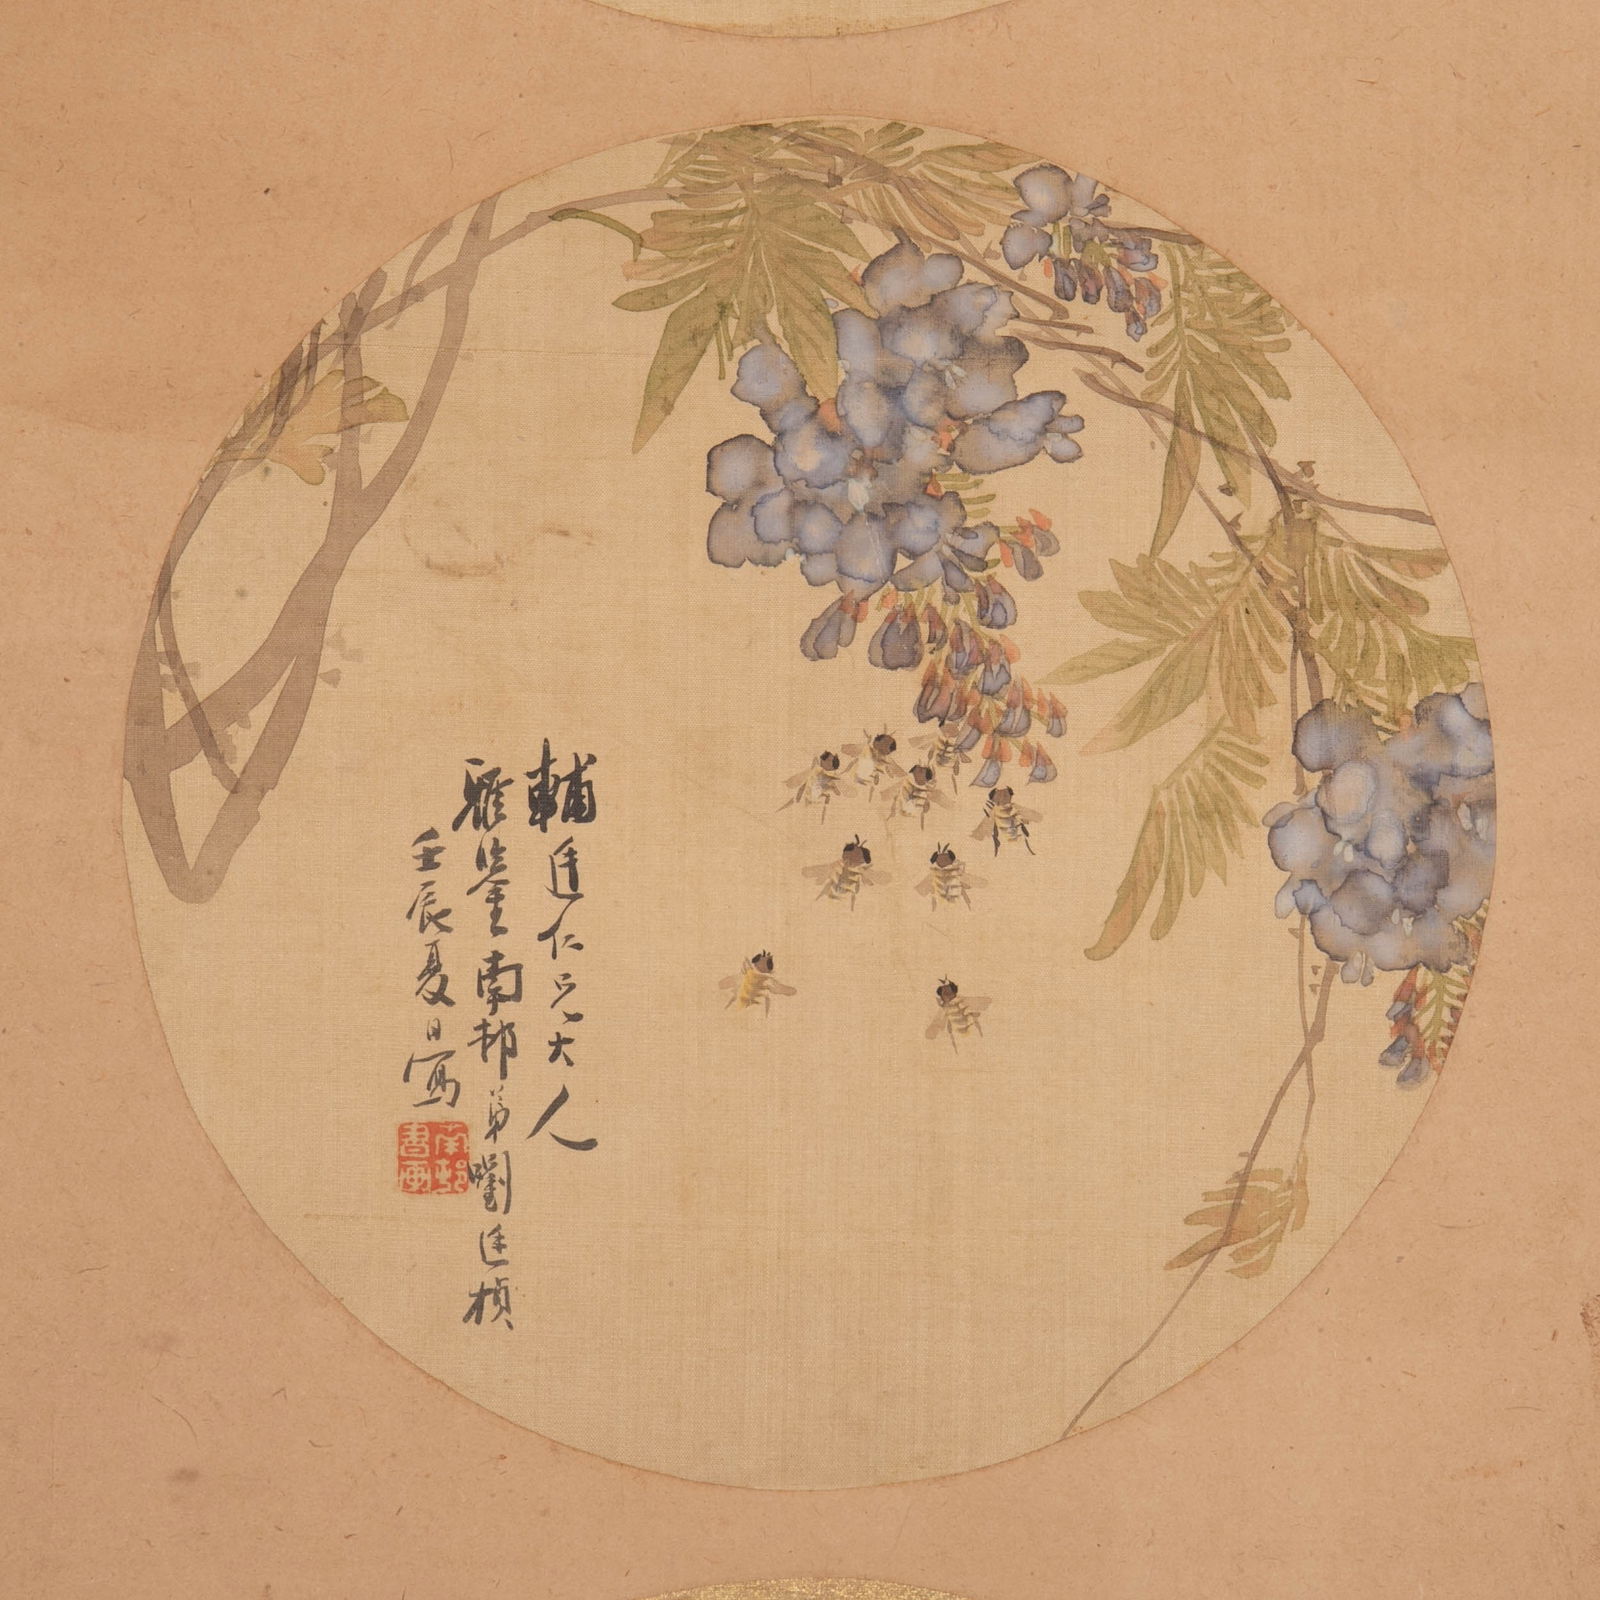 輔廷仁兄大人
雅鑒南邨弟劉廷楨
壬辰夏日寫
南邨書画